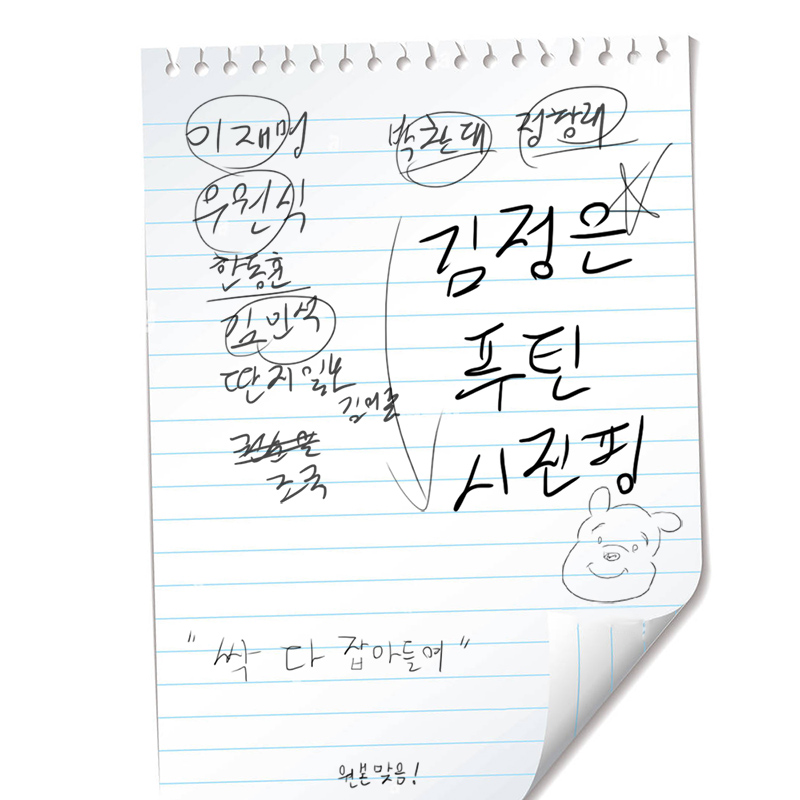 이재명 박찬대 정청래
우원식
김정은
한동훈
김민석
푸틴
딴지일보
김어준
시진핑
권순일
조국
"싹 다 잡아들여"
원본맞음!